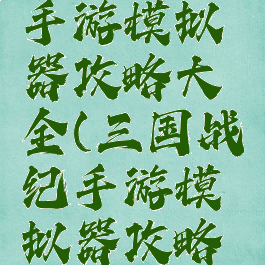 手游模拟
器攻略大
全(三国战
纪手游模
拟器攻略